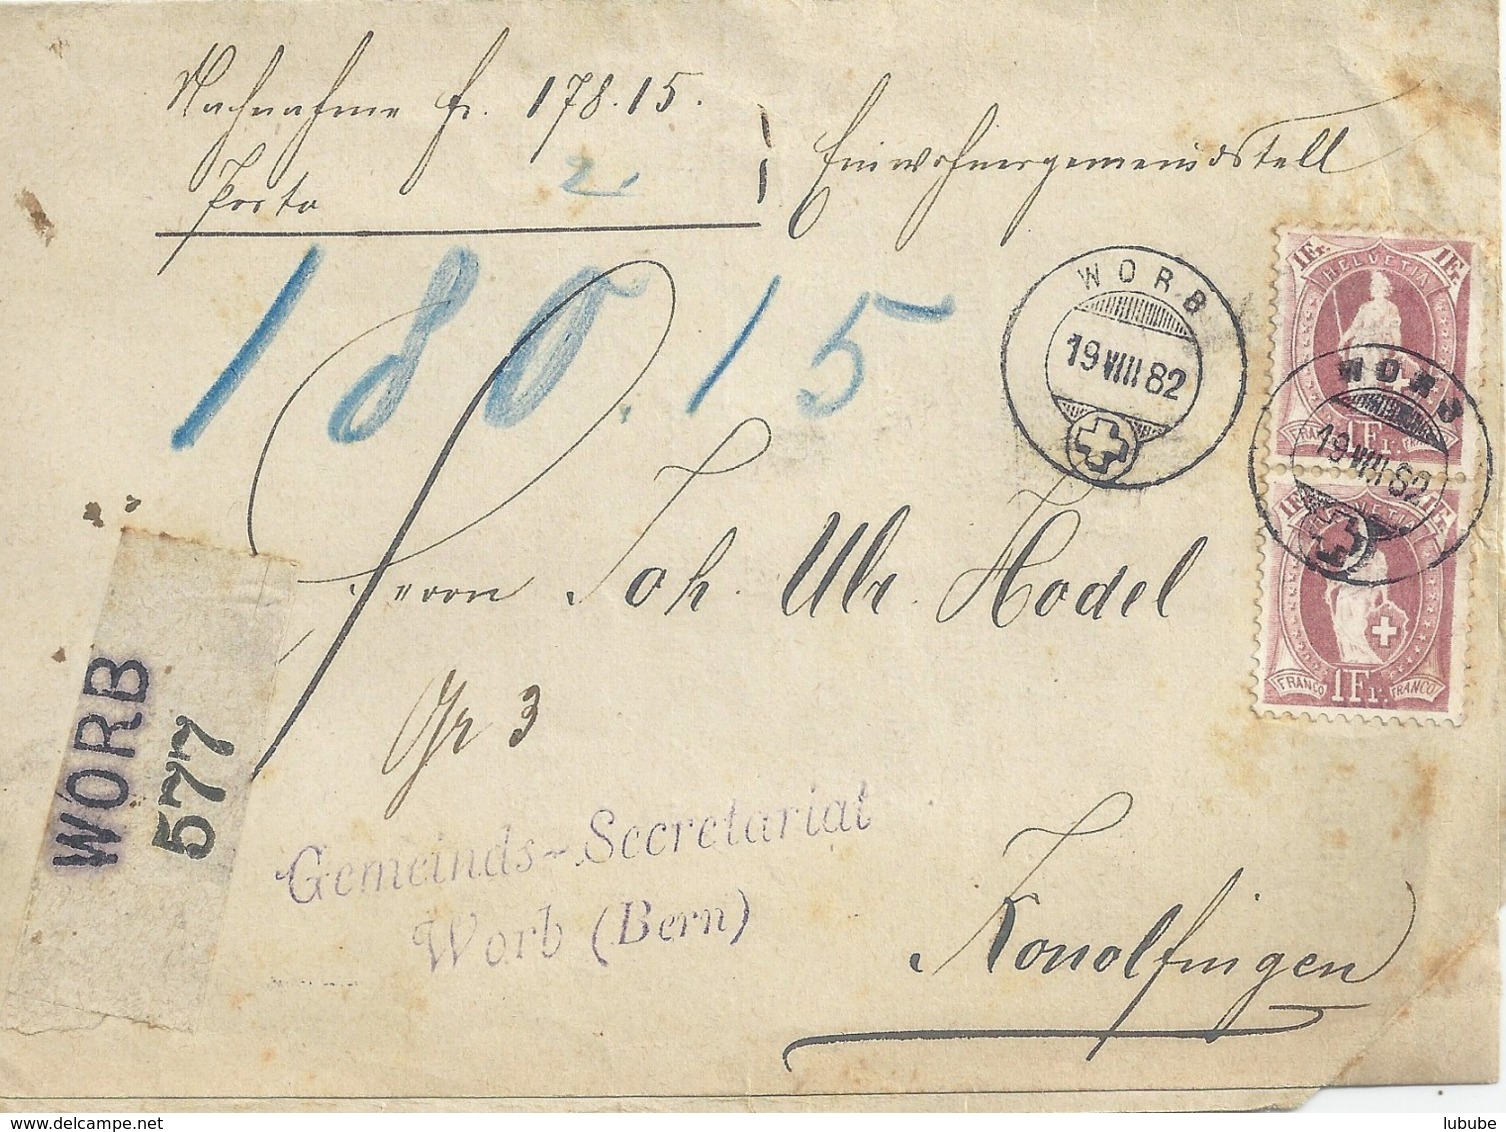 Nachnahme fr. 178.15.
Einwohnergemeindstell
Porto 2.
180.15
WORB
19 VIII 82
1Fr. 1Fr.
HELVETIA
WORB
19 VIII 82
FRANCO 1Fr. FRANCO
HELVETIA
FRANCO 1Fr. FRANCO
Herrn Joh. Ulr. Hodel
WORB
577
Gemeinds-Secretariat
Worb (Bern)
Konolfingen
www.delcampe.net
lubube